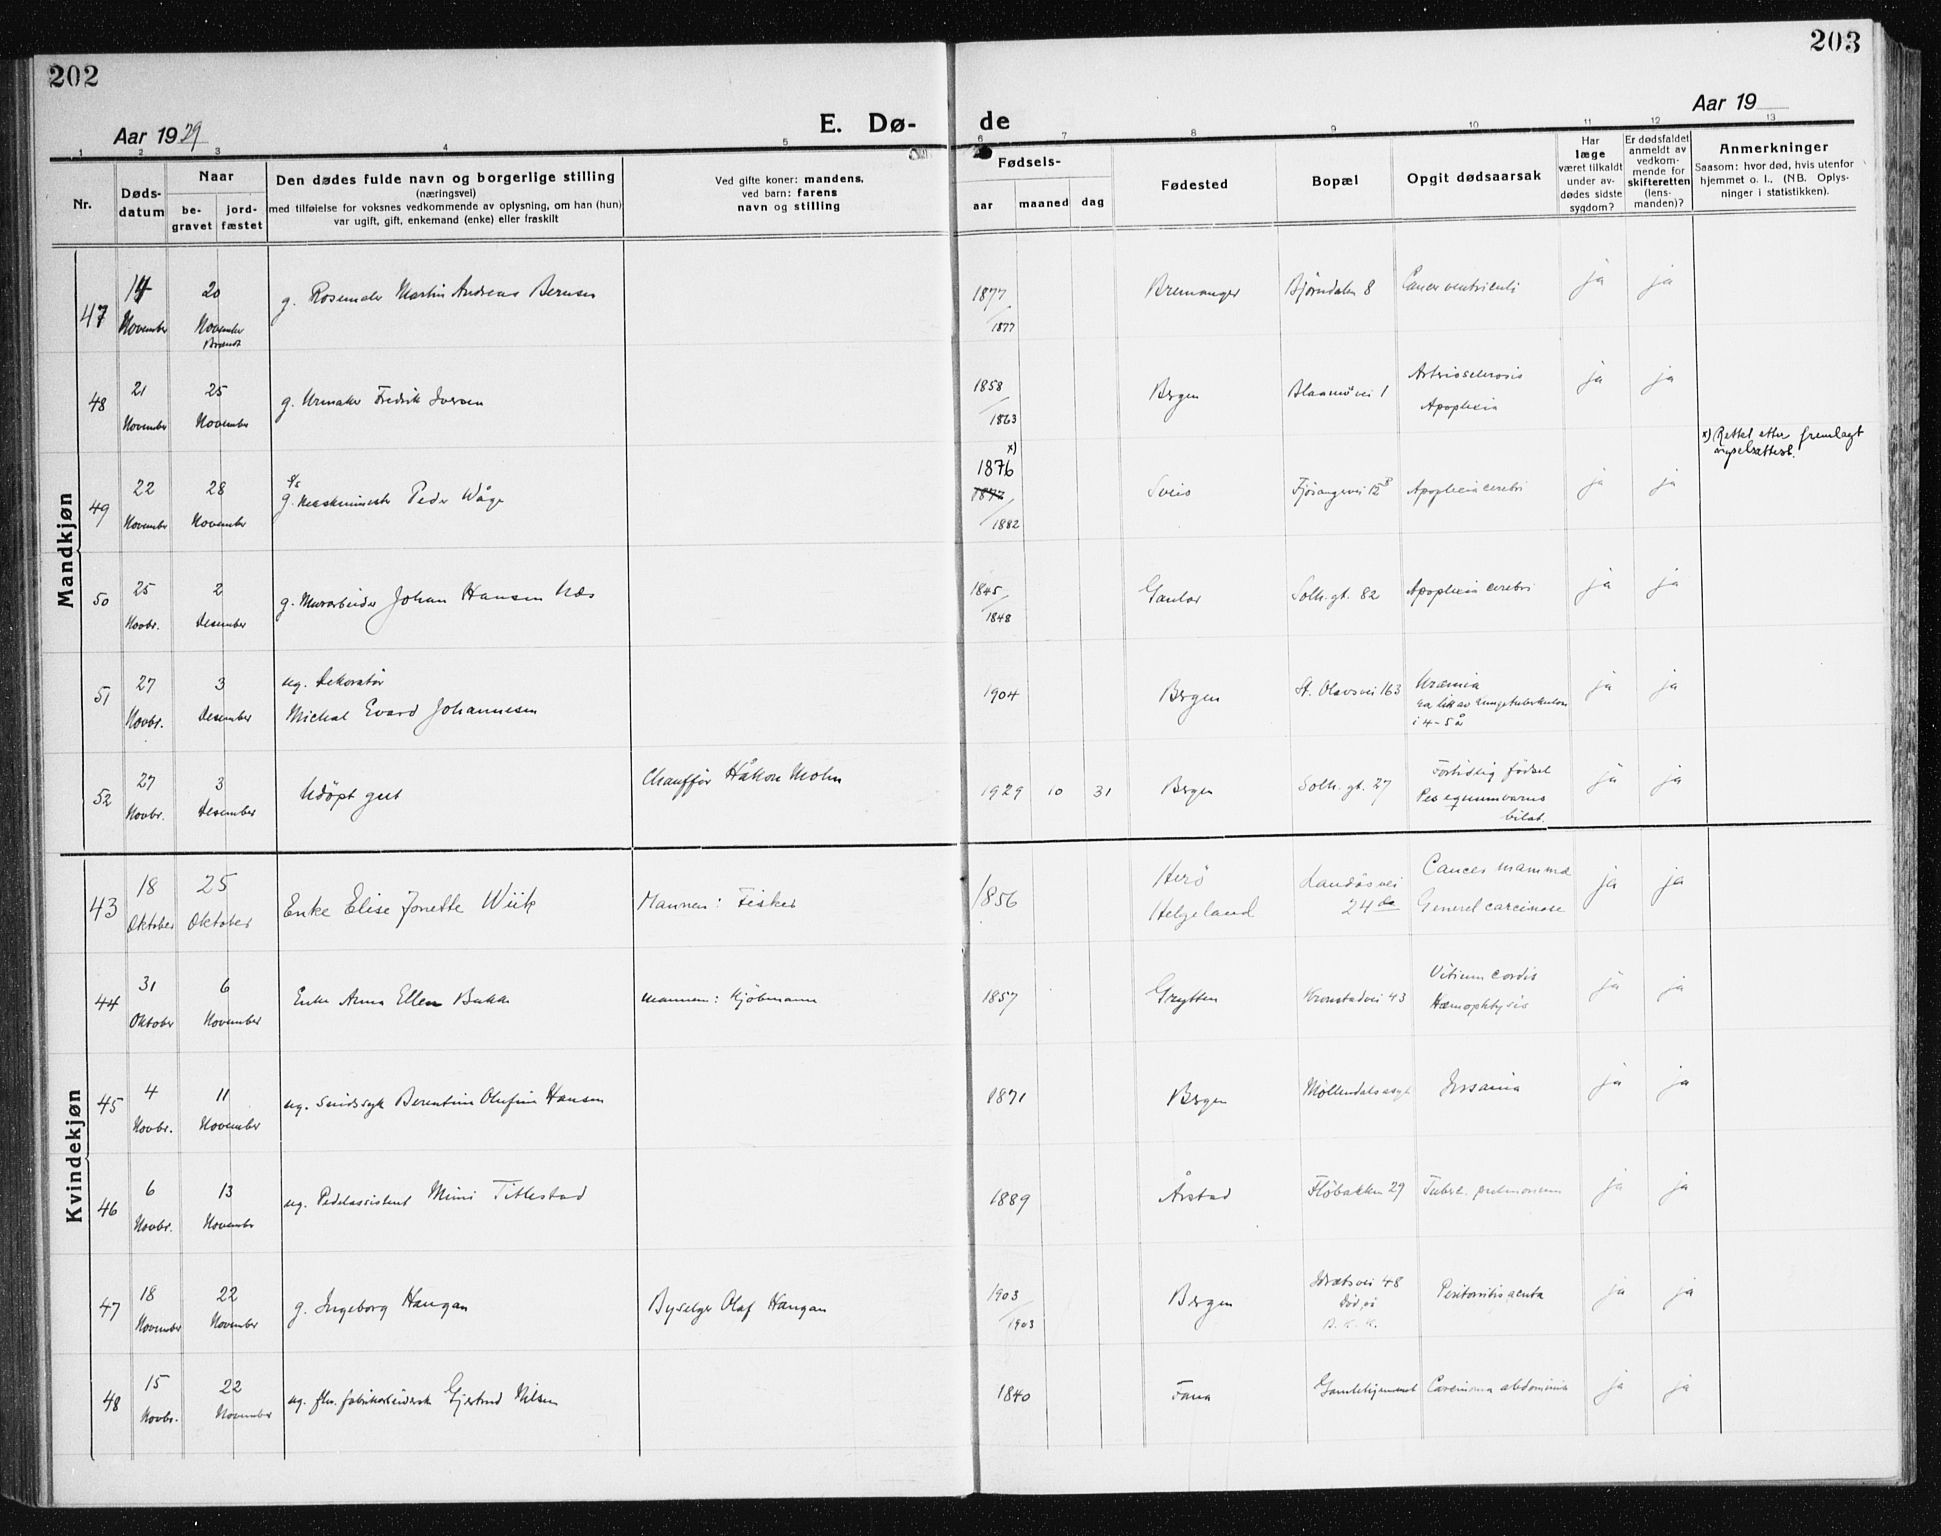 202
203
Aar 1929
E. Dø-
de
Aar 19
1 2 3 4 5 6 7 8 9 10 11 12 13
Nr.
Døds-
datum
Naar
be-
gravet
jord-
fæstet
Den dødes fulde navn og borgerlige stilling
(næringsvei)
med tilføielse for voksnes vedkommende av oplysning, om han (hun)
var ugift, gift, enkemand (enke) eller fraskilt
Ved gifte koner: mandens,
ved barn: farens
navn og stilling
Fødsels-
aar
maaned
dag
Fødested
Bopæl
Opgit dødsaarsak
Har
læge
været tilkaldt
under av-
dødes sidste
sygdom?
Er dødsfaldet
anmeldt av
vedkom-
mende for
skifteretten
(lens-
manden)?
Anmerkninger
Saasom: hvor død, hvis utenfor
hjemmet o. l., (NB. Oplys-
ninger i statistikken).
Mandkjøn
47 14 November 20 November Brændt g. Rosemaler Martin Andreas Bernsen 1877/1877 Bremanger Bjørndalen 8 Cancer ventriculi ja ja
48 21 November 25 November g. Urmaker Fredrik Iversen 1858/1863 Bergen Blaamövei 1 Arteriosclerosis
Apoplexia ja ja
49 22 November 28 November g. Maskinmester Peder Wåge x) 1876 1877/1882 Sveio Fjösangervei 12 Apoplexia cerebri ja ja x) Rettet etter fremlagt
50 25 Novbr. 2 Desember g. Murarbeider Johan Hansen Næs 1845/1848 Gaular Solh. gt. 82 Apoplexia cerebri ja ja
51 27 Novbr. 3 Desember ug. Dekoratør
Michal Evard Johannesen 1904 Bergen St. Olavsvei 163 Uræmia
i 4-5 år ja ja
52 27 Novbr. 3 Desember Udöpt gut Chauffør Håkon Mohn 1929 10 31 Bergen Solh. gt. 27 Fortidlig födsel
Pes equinovarus
bilat. ja ja
Kvindekjøn
43 18 Oktober 25 Oktober Enke Elise Jonette Wiik Mannen: Fisker 1856 Herö
Helgeland Landåsvei
24 Cancer mamma
Generel carcinose ja ja
44 31 Oktober 6 November Enke Anna Ellen Bakke Mannen: Kjöbmann 1857 Grytten Kronstadvei 43 Vitium cordis
Hæmophtysis ja ja
45 4 Novbr. 11 November ug. Sindssyk Berentine Olufine Hansen 1871 Bergen Møllendalsasyl Insania ja ja
46 6 Novbr. 13 November ug. Mimi Titlestad 1889 Årstad Flöbakken 29 Tuberc. pulmonum ja ja
47 18 November 22 November g. Ingeborg Haugan Byselger Olaf Haugan 1903/1903 Bergen Idrætsvei 48
Död på
B. K. K. Peritonitis acuta ja ja
48 15 Novbr. 22 November ug. fhv. fabrikarbeiderske Gjertrud Nilsen 1840 Fana Gamlehjemmet Carcinoma abdominis ja ja